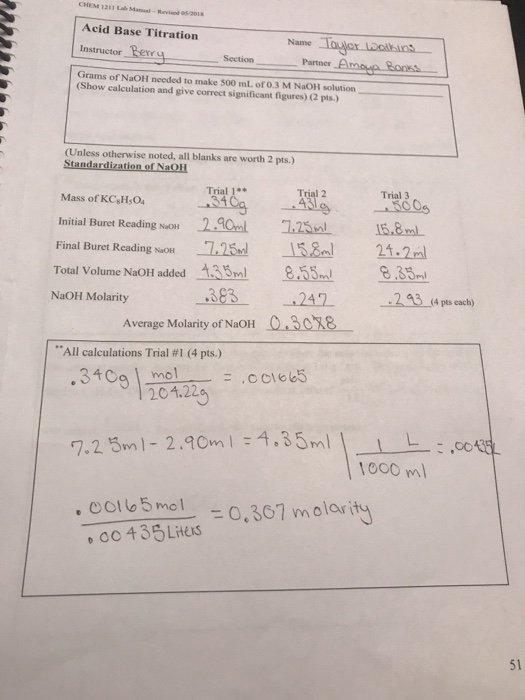 CHEM 1211 Lab Manual - Revised 05/2018
Acid Base Titration
Name Taylor Watkins
Instructor Berry Section Partner Amaya Banks
Grams of NaOH needed to make 500 mL of 0.3 M NaOH solution
(Show calculation and give correct significant figures) (2 pts.)
(Unless otherwise noted, all blanks are worth 2 pts.)
Standardization of NaOH
Trial 1** Trial 2 Trial 3
Mass of KC₈H₅O₄ .340g .431g .500g
Initial Buret Reading NaOH 2.90ml 7.25ml 15.8ml
Final Buret Reading NaOH 7.25ml 15.8ml 24.2ml
Total Volume NaOH added 4.35ml 8.55ml 8.35ml
NaOH Molarity .383 .247 .293 (4 pts each)
Average Molarity of NaOH
**All calculations Trial #1 (4 pts.)
.340g | mol = .001665
204.22g
7.25ml - 2.90ml = 4.35ml | 1 L = .00435L
1000 ml
.00165mol = 0.367 molarity
.00435 Liters
51